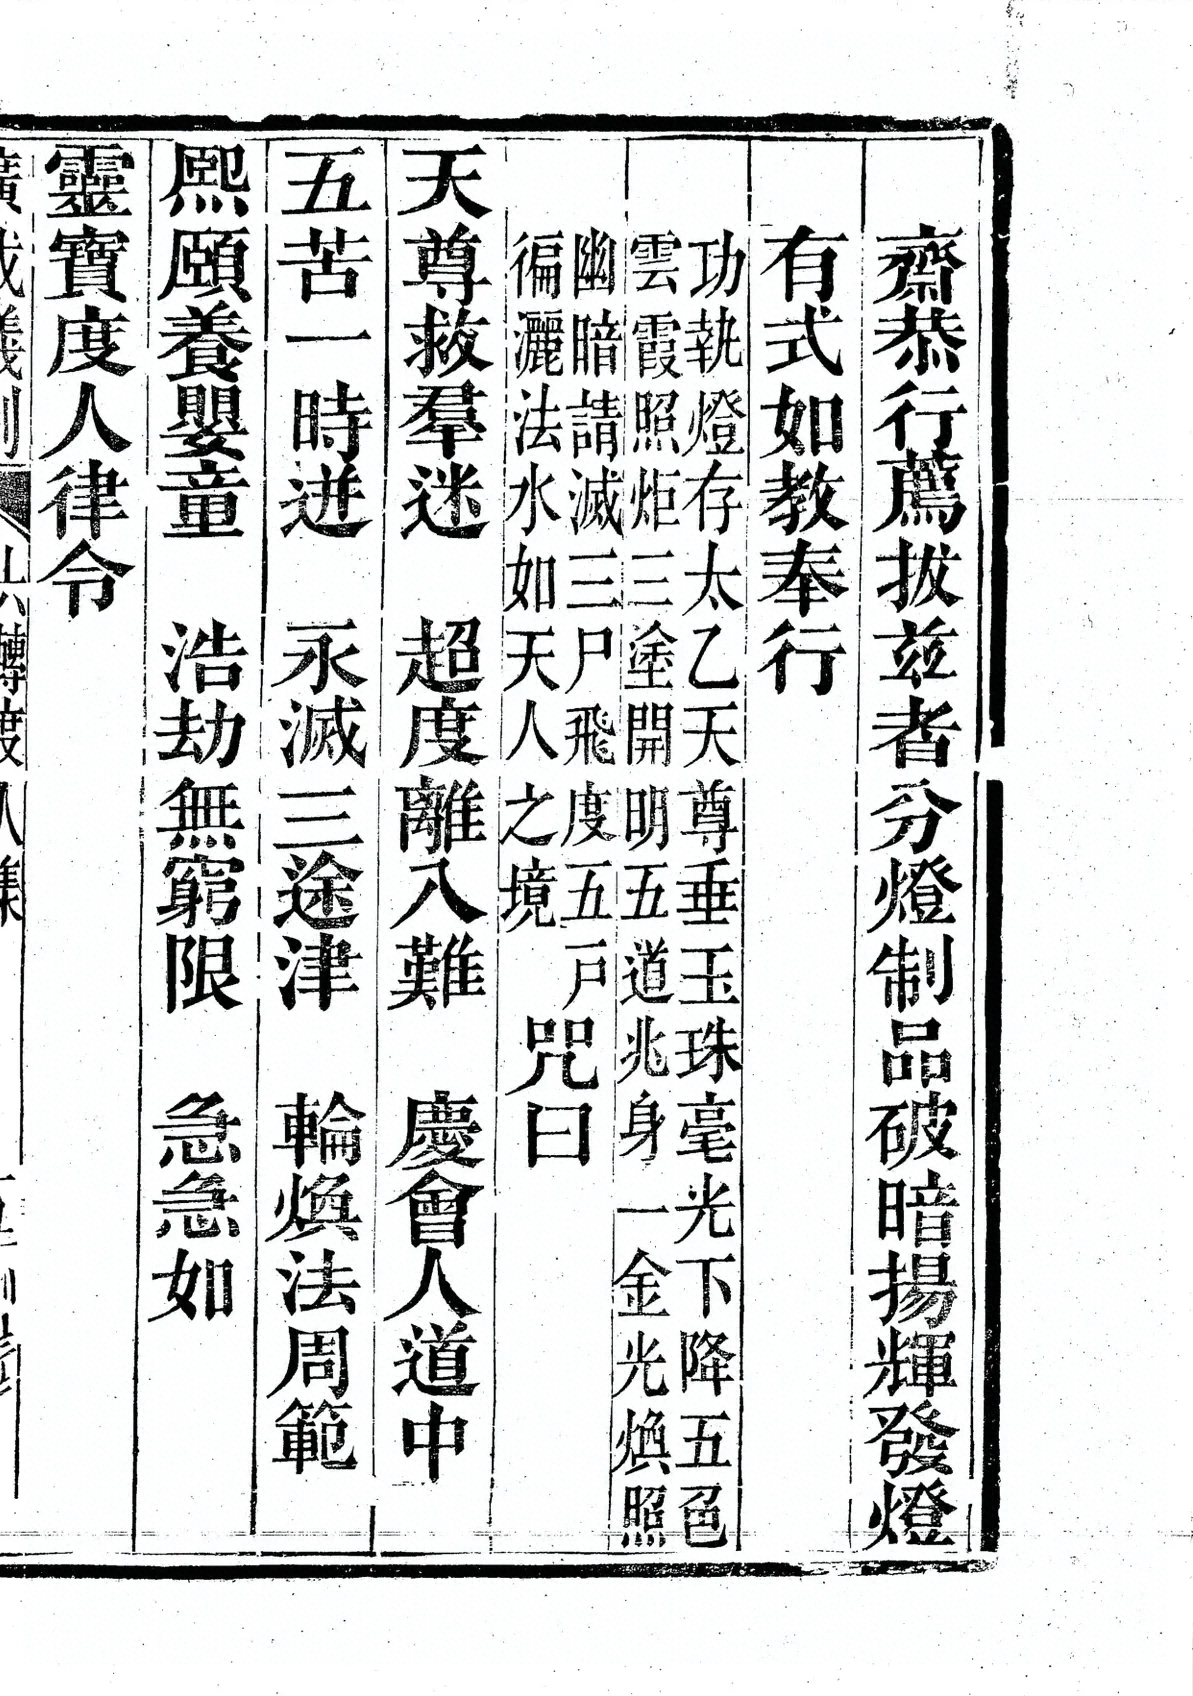 齋恭行薦拔兹者分燈制品破暗揚輝發燈
有式如教奉行
功執燈存太乙天尊垂玉珠毫光下降五色
雲霞照炬三塗開明五道兆身一金光煥照
幽暗請滅三尸飛度五戸
徧灑法水如天人之境
咒曰
天尊救羣迷　超度離八難　慶會人道中
五苦一時迸　永滅三途津　輪煥法周範
熙頤養嬰童　浩劫無窮限　急急如
靈寶度人律令
廣成儀制　轉度人集